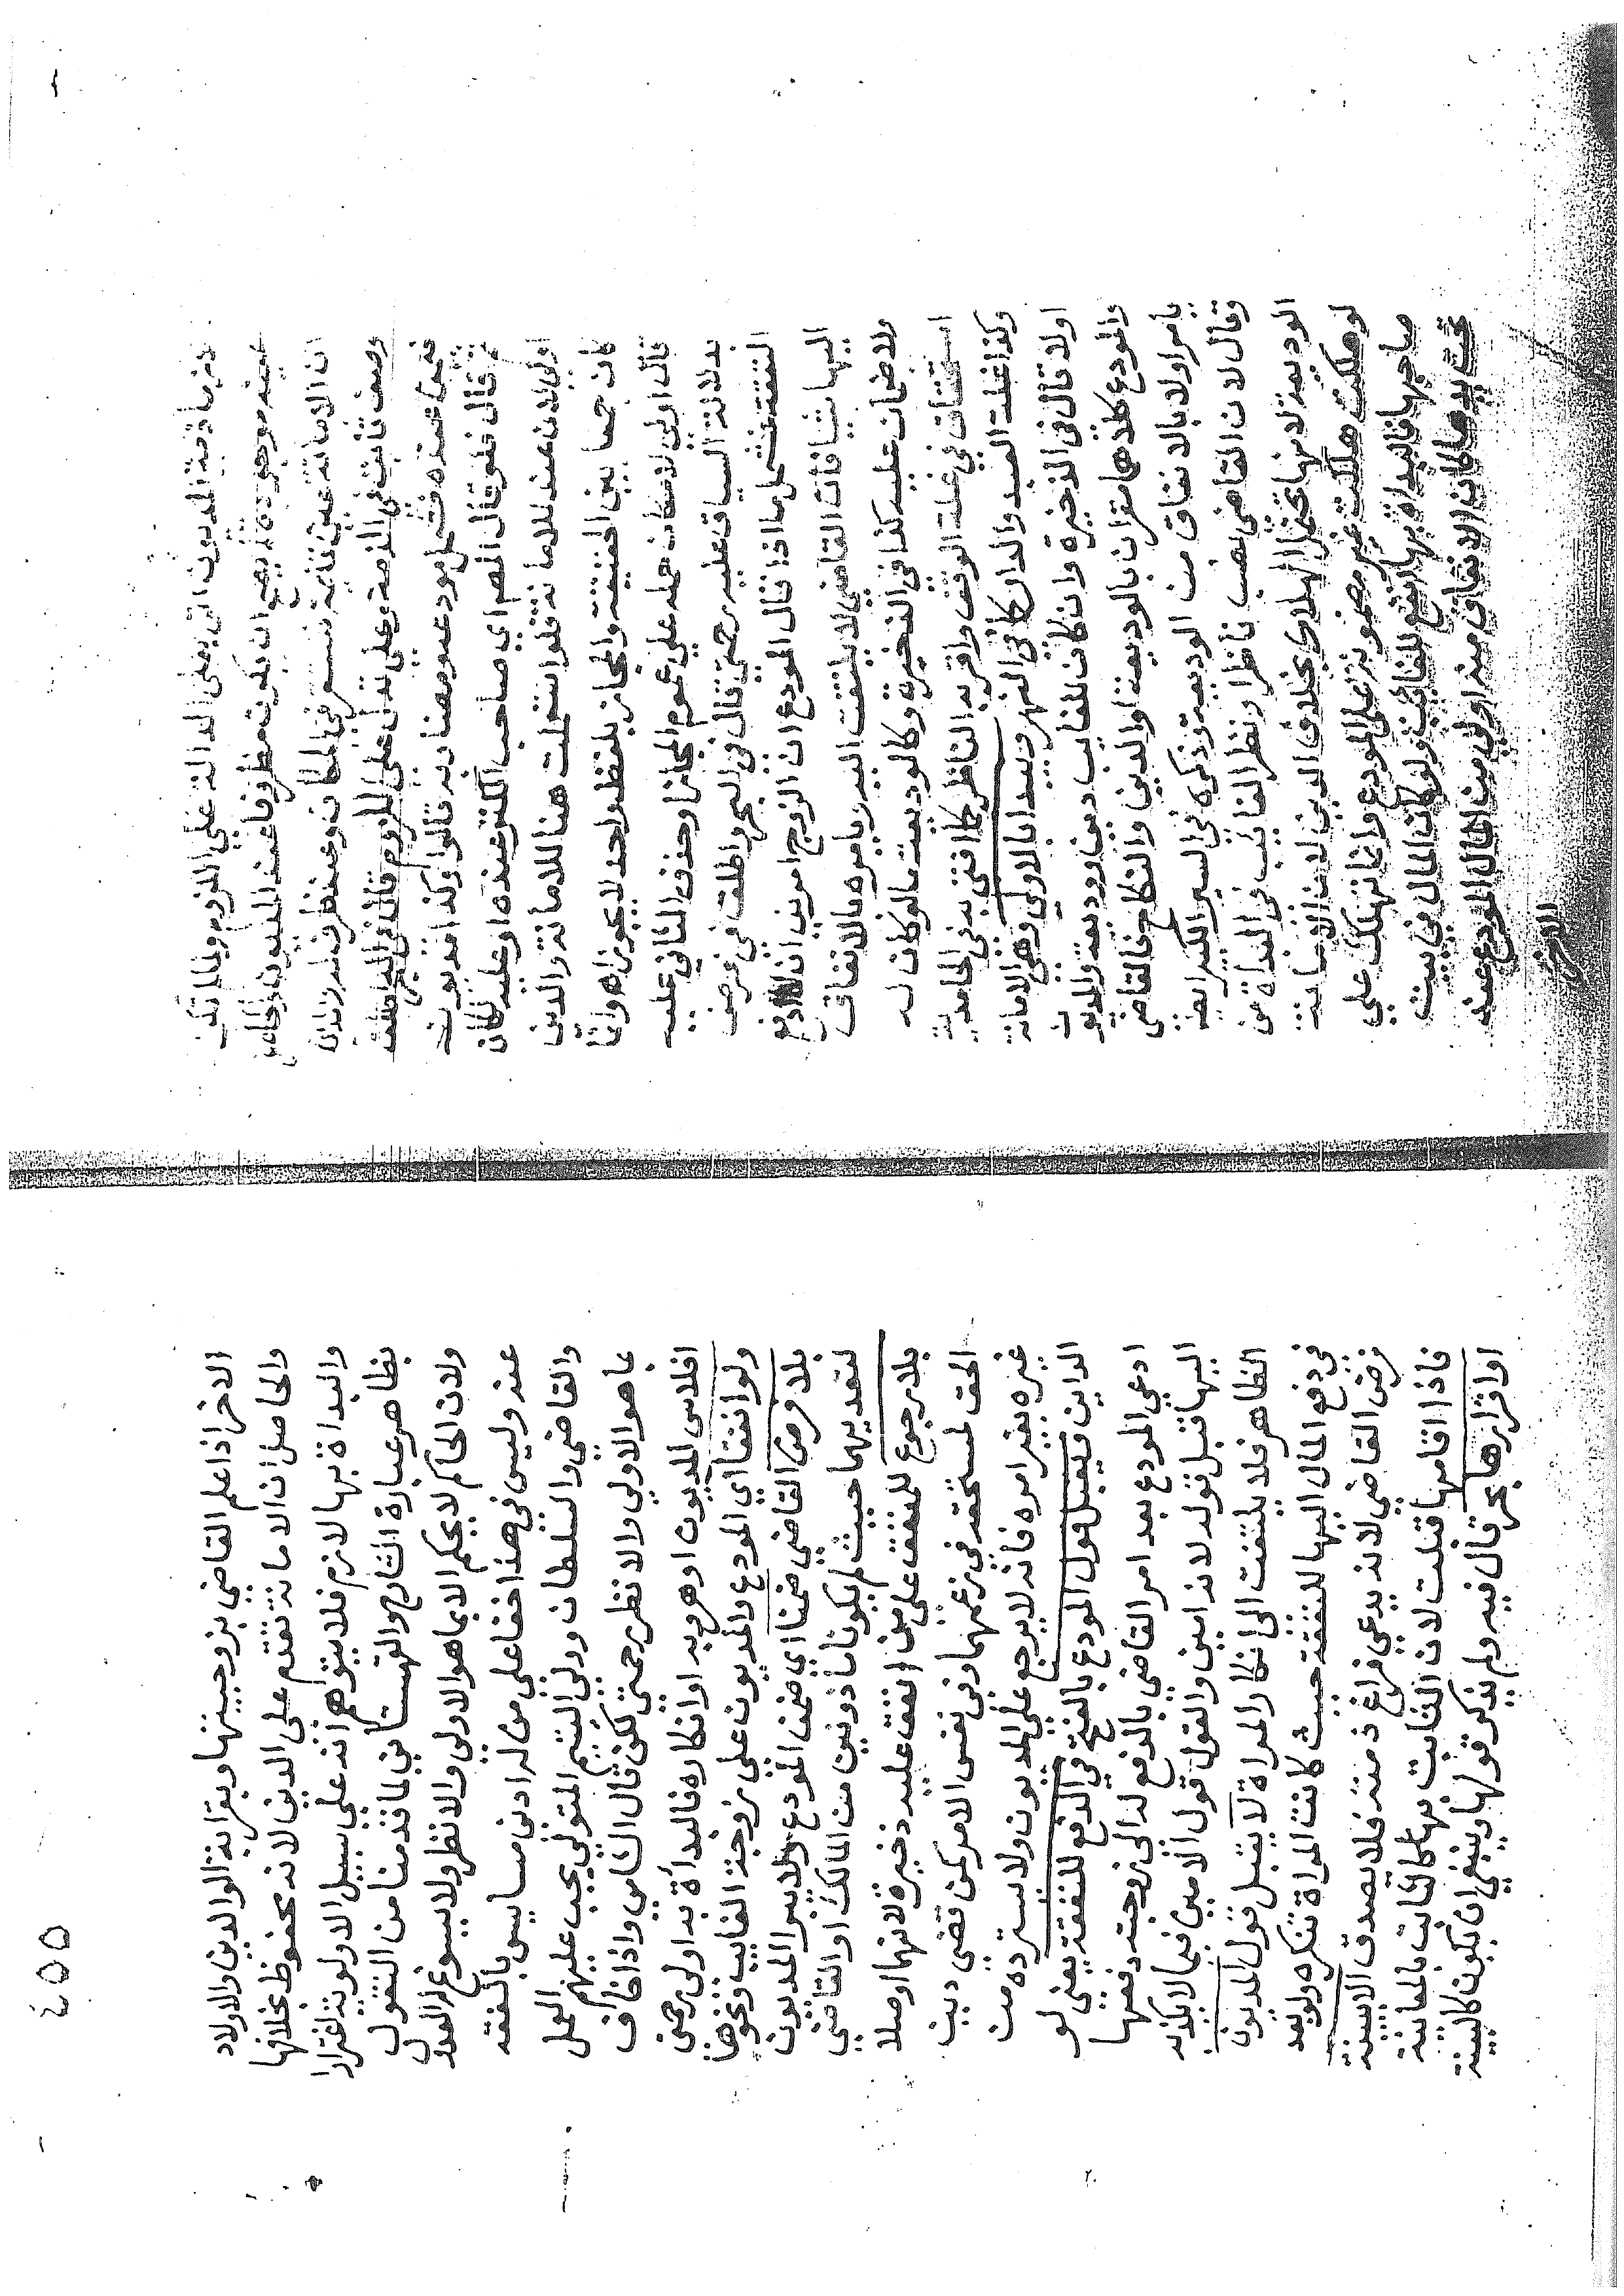 لازم ما ذمة المديون اتى بعلى الدالة على اللزوم ولما كان
عينه موجودة لم يصح ان يكون مظروفا عند المديون والحاصل
ان الامانة عين قائمة تستقر في المكان وعند ظرف مكان والدين
وصف ثابت في الذمة وعلى تدل على اللزوم قال في البحر اطلق
فيمن عنده فشمل مودعه ومضاربه قالوا وكذا مديونه
ثم قال فلو قال المصـ اي صاحب الكنز عنده او عليه لكان
اولى لان عند للامانة قلوا استعملت هنا للامانة والدين
كان جمعا بين الحقيقة والمجاز بلفظ واحد لا يجوز اهـ وانما
قال اولى لامكان حمله على عموم المجاز او حذف الثاني عليه
بدلالة السياق عليه رحمتي قال في البحر واطلق في فرض
النفقة فشمل ما اذا قال المودع ان الزوج امرني ان لا ادفع
اليها شيا فان القاضي لا يلتفت اليه ويامره بالانفاق
ولا ضمان عليه كذا في الذخيرة وكالوديعة ما لو كان له
استحقاق في غلة الوقف واقر به الناظر كما افتى به في الحامدية
وكذا غلة العبد والدار كما في النهر ويبدا بالاولى وهي الامانة
اولا قال في الذخيرة وان كان للغايب دين ووديعة والمديون
والمودع كلاهما مقران بالوديعة او الدين والنكاح فالقاضي
يامر اولا بالانفاق من الوديعة وذكره في السير الكبير ايضا
وقال لان القاضي نصب ناظرا ونظر الغائب في البداءة من
الوديعة لانها تحتمل الهلاك بخلاف الدين لان الامانة
لو هلكت هلكت غير مضمونة على المودع وانما تهلك على
صاحبها فالبداءة بها انفع للغائب ولو كان المال في بيت
تحت يدها كان الانفاق منه اولى من المال المودع عند
الاخر
٤٥٥
الاخر اذا علم القاضي بزوجيتها وبقرابة الوالدين والاولاد
والحاصل ان الامانة تقدم على الدين لانه محفوظ بخلافها
والبداءة بها لازم فلا يتوهم انه على سبيل الاولوية اغترارا
بظاهر عبارة الشارح والقهستاني لما قدمنا من النقول
ولان الحاكم لا يحكم الا بما هو الاولى والانظر ولا يسوغ له العدل
عنه وليس في هذا خفا على من له ادنى مسابيس بالفقه
والقاضي والسلطان وولي اليتيم المتولي يجب عليهم العمل
بما هو الاولى والانظر رحمتي لكن قال الشامي واذا خاف
افلاس المديون او هروبه او انكاره فالبداءة به اولى رحمتي
ولو انفقا اي المودع والمديون على زوجة الغايب ونحوها
بلا فرض القاضي ضمنا اي ضمن المودع ولا يبرا المديون
لتعديهما حيث لم يكونا ماذونين من المالك او القاضي
بلا رجوع للمنفق على من انفق عليه ذخيرة لانهما اوصلا
الحق لمستحقه في زعمهما وفي نفس الامر كمن قضى دين
غيره بغير امره فانه لا يرجع على المديون ولا يسترده من
الداين فيقبل قول المودع بالفتح في الدفع للنفقة يعني لو
ادعى المودع بعد امر القاضي بالدفع له الى زوجته دفعها
اليها قبل قوله لانه امين والقول قول الامين فيما لا يكذبه
الظاهر فلا يلتفت الى انكار المراة لا يقبل قول المديون
في دفع المال اليها للنفقة حيث كانت المراة تنكره ولو بعد
فرض القاضي لانه يدعي فراغ ذمته فلا يصدق الا ببينة
فاذا اقامها قبلت لان الثابت بها كالثابت بالمعاينة
او اقرارها بحر قال فيه ولم يذكر قولها وينبغي ان يكون كالبينة